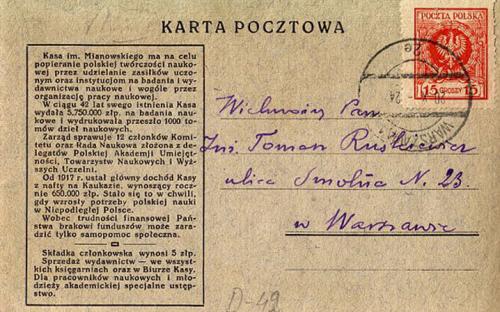 KARTA POCZTOWA
POCZTA POLSKA
15 GROSZY 15
WARSZAWA
Kasa im. Mianowskiego ma na celu
popieranie polskiej twórczości nauko-
wej przez udzielanie zasiłków uczo-
nym oraz instytucjom na badania i wy-
dawnictwa naukowe i wogóle przez
organizację pracy naukowej.
W ciągu 42 lat swego istnienia Kasa
wydała 5.750.000 złp. na badania nau-
kowe i wydrukowała przeszło 1000 to-
mów dzieł naukowych.
Zarząd sprawuje 12 członków Komi-
tetu oraz Rada Naukowa złożona z de-
legatów Polskiej Akademji Umiejęt-
ności, Towarzystw Naukowych i Wyż-
szych Uczelni.
Od 1917 r. ustał główny dochód Kasy
z nafty na Kaukazie, wynoszący rocz-
nie 650.000 złp. Stało się to w chwili,
gdy wzrosły potrzeby polskiej nauki
w Niepodległej Polsce.
Wobec trudności finansowej Pań-
stwa brakowi funduszów może zara-
dzić tylko samopomoc społeczna.
Składka członkowska wynosi 5 złp.
Sprzedaż wydawnictw — we wszyst-
kich księgarniach oraz w Biurze Kasy.
Dla pracowników naukowych i mło-
dzieży akademickiej specjalne ustęp-
stwo.
Wielmożny Pan
Inż. Tomasz Ruśkiewicz
ulica Smolna N. 23.
w Warszawie
D-42